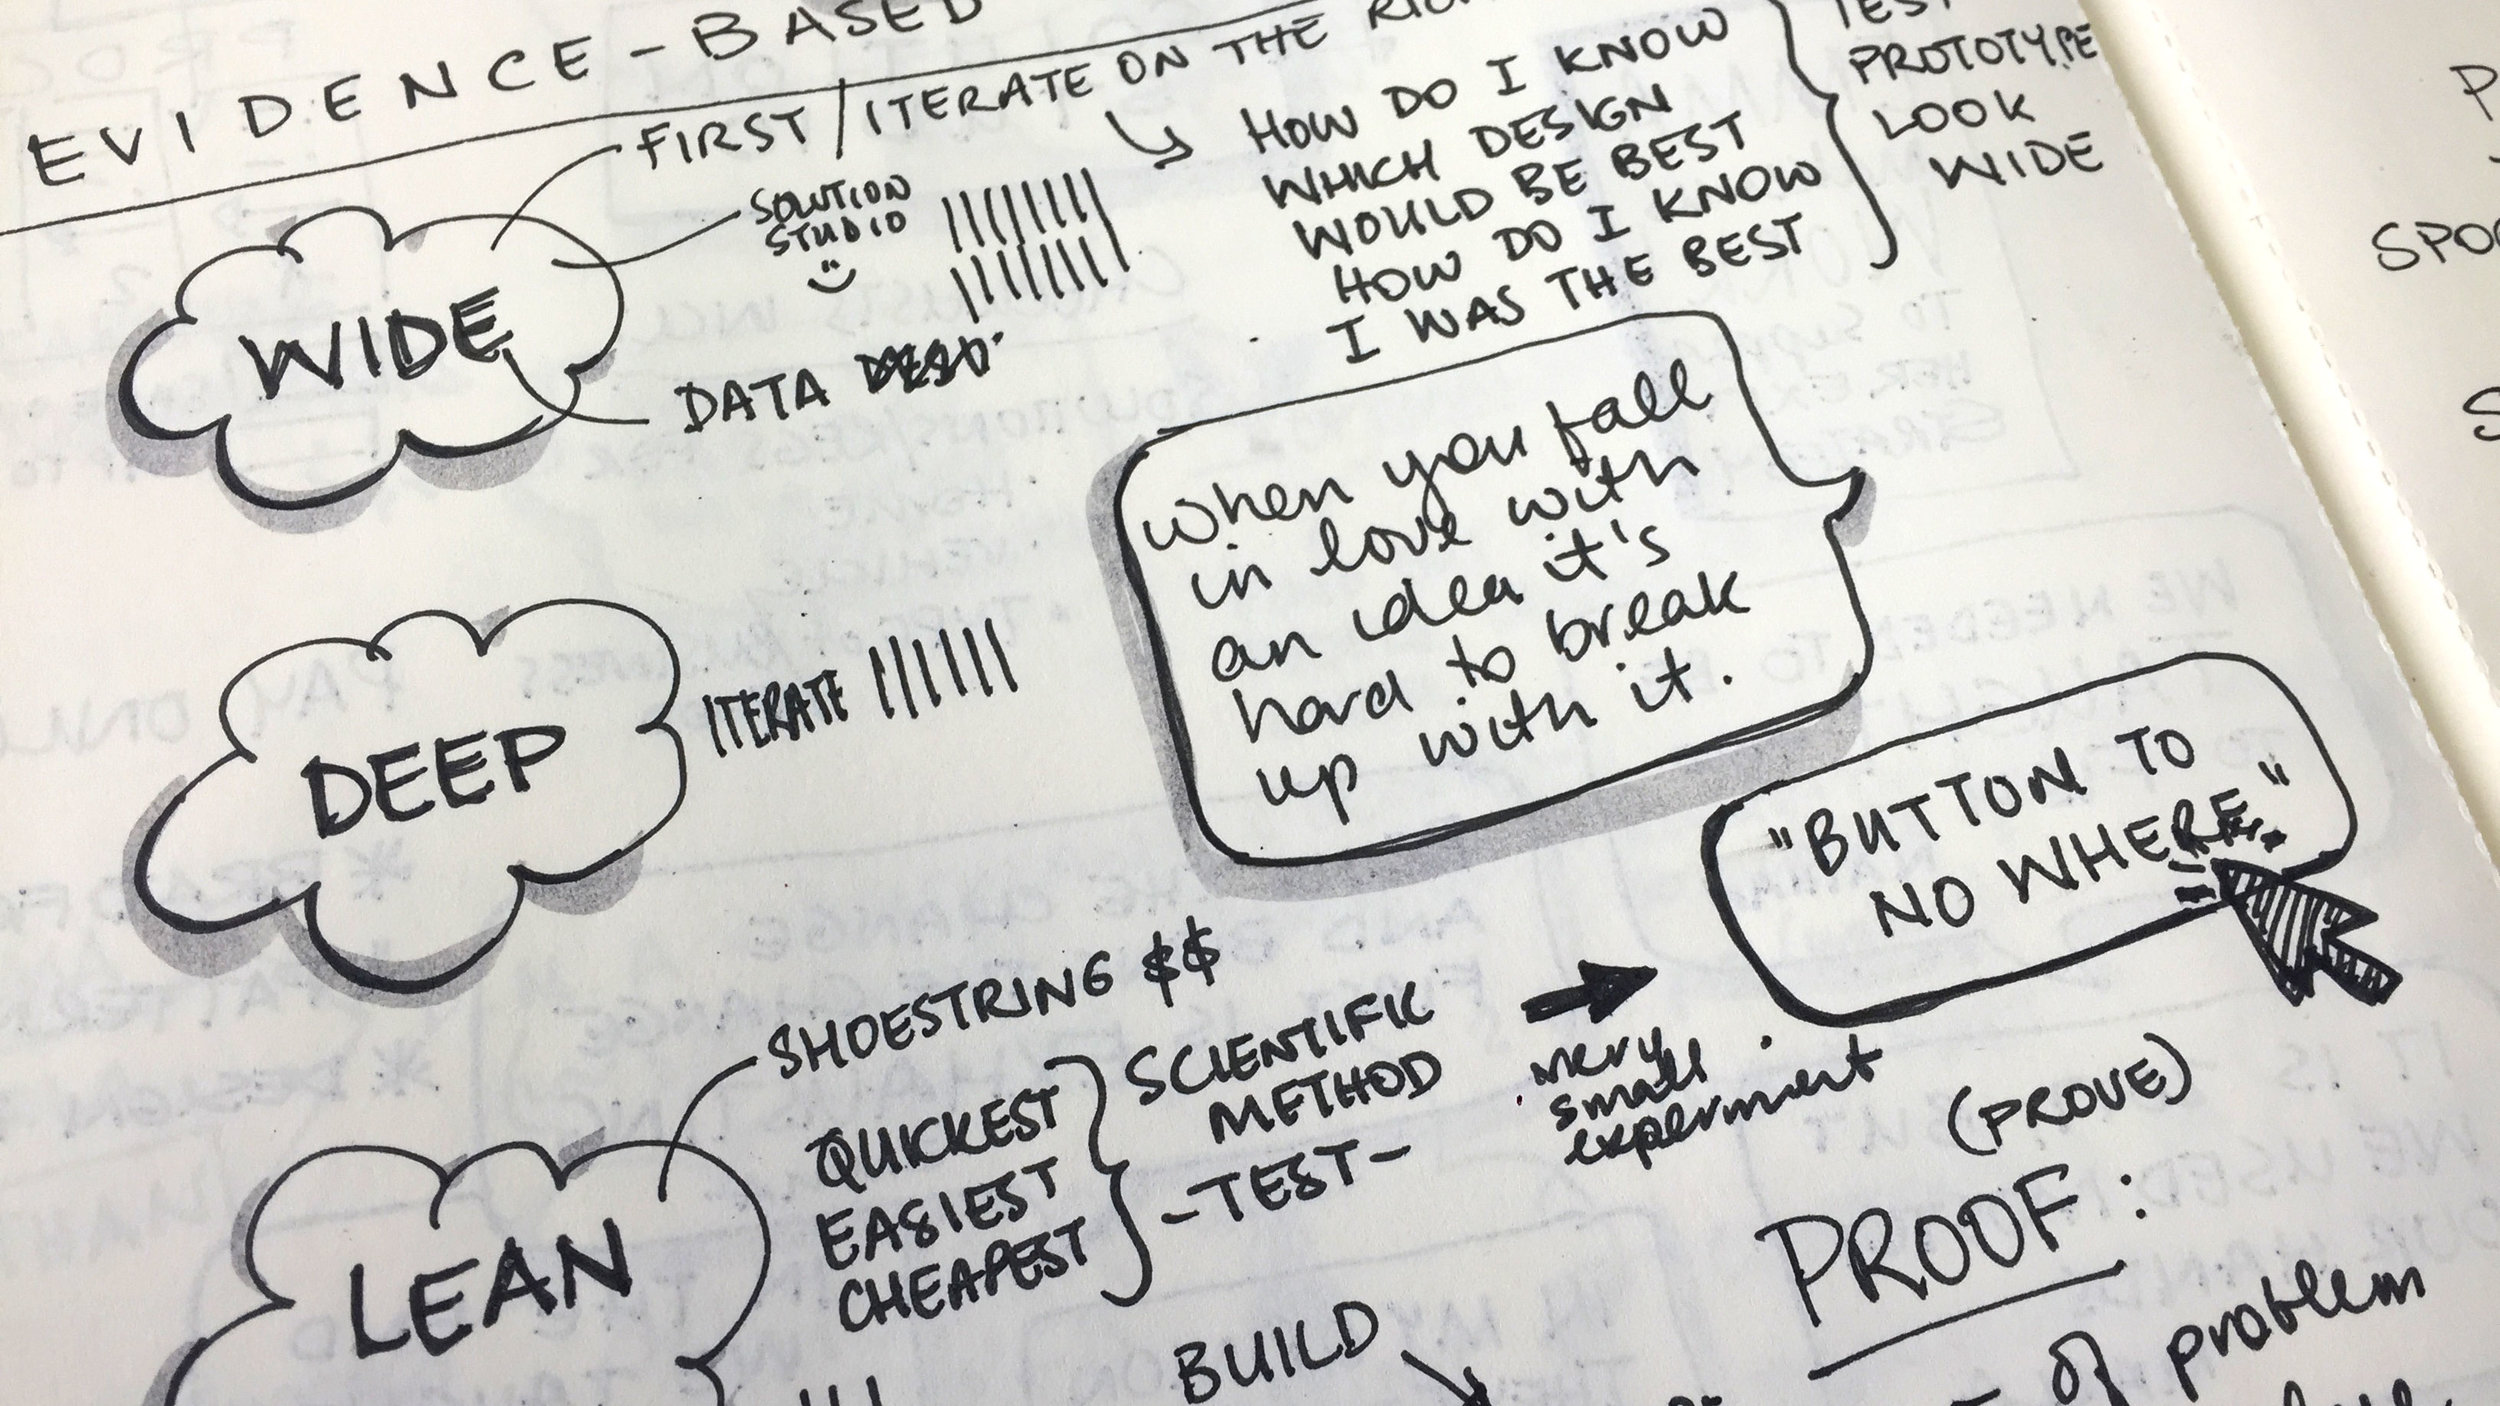 EVIDENCE-BASED
FIRST/ITERATE ON THE
HOW DO I KNOW
WHICH DESIGN
WOULD BE BEST
HOW DO I KNOW
I WAS THE BEST
TEST
PROTOTYPE
LOOK
WIDE
SOLUTION
STUDIO
WIDE
DATA
when you fall
in love with
an idea it's
hard to break
up with it.
DEEP
ITERATE
"BUTTON TO
NO WHERE"
SHOESTRING $$
QUICKEST
EASIEST
CHEAPEST
SCIENTIFIC
METHOD
-TEST-
very
small
experiment
LEAN
(PROVE)
PROOF:
of problem
BUILD